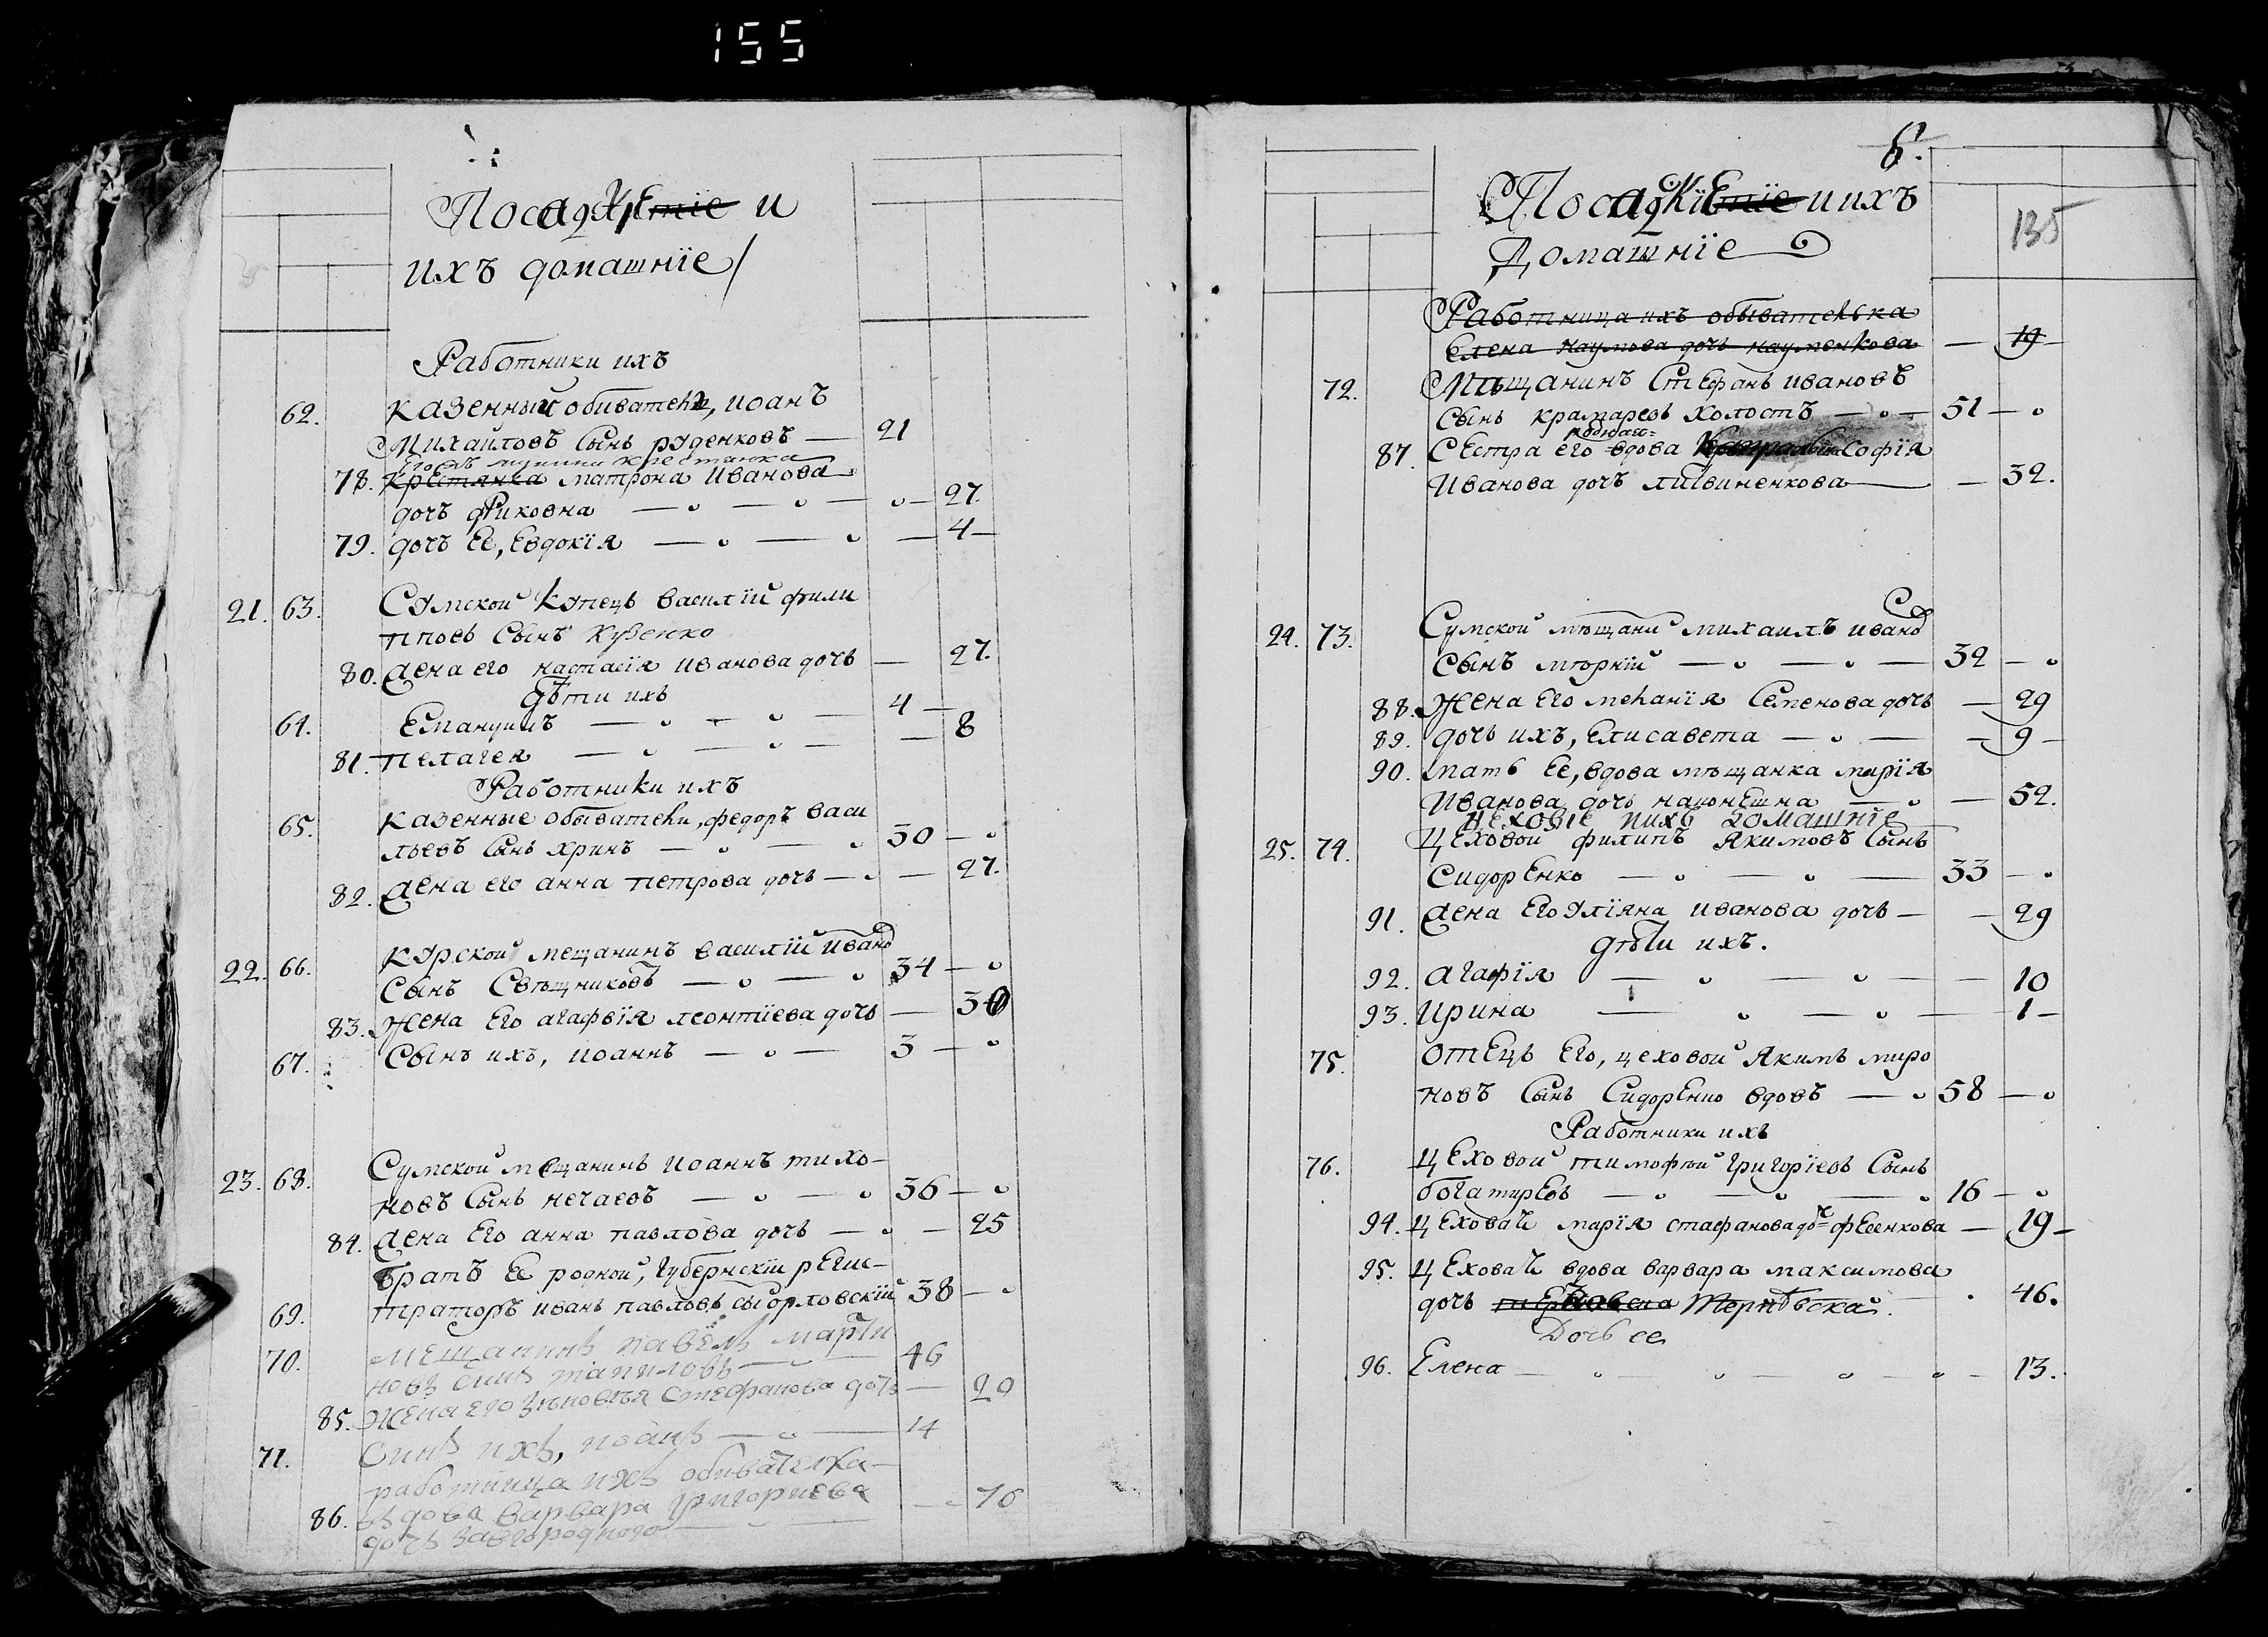 155
Посадскіе и
ихъ домашніе
Работники ихъ
62. Казенный обиватель, иоанъ
Михайловъ Сынъ руденковъ — 21
крестянка
78. Крестянка матрона Иванова
дочъ — 27
79. дочъ Ее, Евдокія — 4
21. 63. Сумской Купецъ василій фили
пповъ Сынъ Кузенко
80. жена его настасія иванова дочъ — 27.
дѣти ихъ
64. Емануилъ — 4
81. пелагея — 8
Работники ихъ
65. казенные обыватели, федоръ васи
льевъ Сынъ хринъ — 30
82. жена его анна петрова дочъ — 27.
22. 66. Курской мещанинъ василій ивано
Сынъ Свѣщниковъ — 34
83. Жена Его агафвія леонтіева дочъ — 30
67. Сынъ ихъ, иоаннъ — 3
23. 68. Сумской мещанинъ иоаннъ тихо-
новъ Сынъ нечаевъ — 36
84. жена Его анна павлова дочъ — 25
братъ Ее родной, губернскій рЕгис-
69. траторъ иванъ павловъ 38
70. мещанинъ павелъ марти
новъ синъ 46
85. Жена его Стефанова дочъ — 20
71. Синъ ихъ, иоанъ — 14
работница ихъ обивателка
86. вдова варвара григориева 70
дочъ завгороднего
6.
135
Посадскіе и ихъ
Домашніе
Работница ихъ обывателька
Елена наумова дочъ науменкова — 19
72. Мѣщанинъ Стефанъ ивановъ
Сынъ крамаревъ холостъ — 51
87. СЕстра его вдова Софія
Иванова дочъ литвиненкова — 32.
24. 73. Сумской мѣщани михаилъ ивано
Сынъ мѣркій — 32
88. Жена Его меланія Семенова дочъ — 29
89. дочъ ихъ, Елисавета — 9
90. мать Ее, вдова мѣщанка марія
Иванова дочъ — 52.
цеховіе и ихъ домашніе
25. 74. ЦЕховой филипъ Якимовъ Сынъ
СидорЕнко — 33
91. жена Его Уліяна иванова дочъ — 29
дѣти ихъ.
92. агафія — 10
93. Ирина — 1
75. ОтЕцъ Его, цеховой Якимъ миро
новъ Сынъ СидорЕнко вдовъ — 58
Работники ихъ
76. ЦЕховой тимофѣй григоріевъ Сынъ
богатирЕвъ — 16
94. ЦЕховая марія стафанова доч фЕсенкова — 19
95. ЦЕховая вдова варвара максимова
дочъ 46.
Дочь ее
96. Елена — 13.